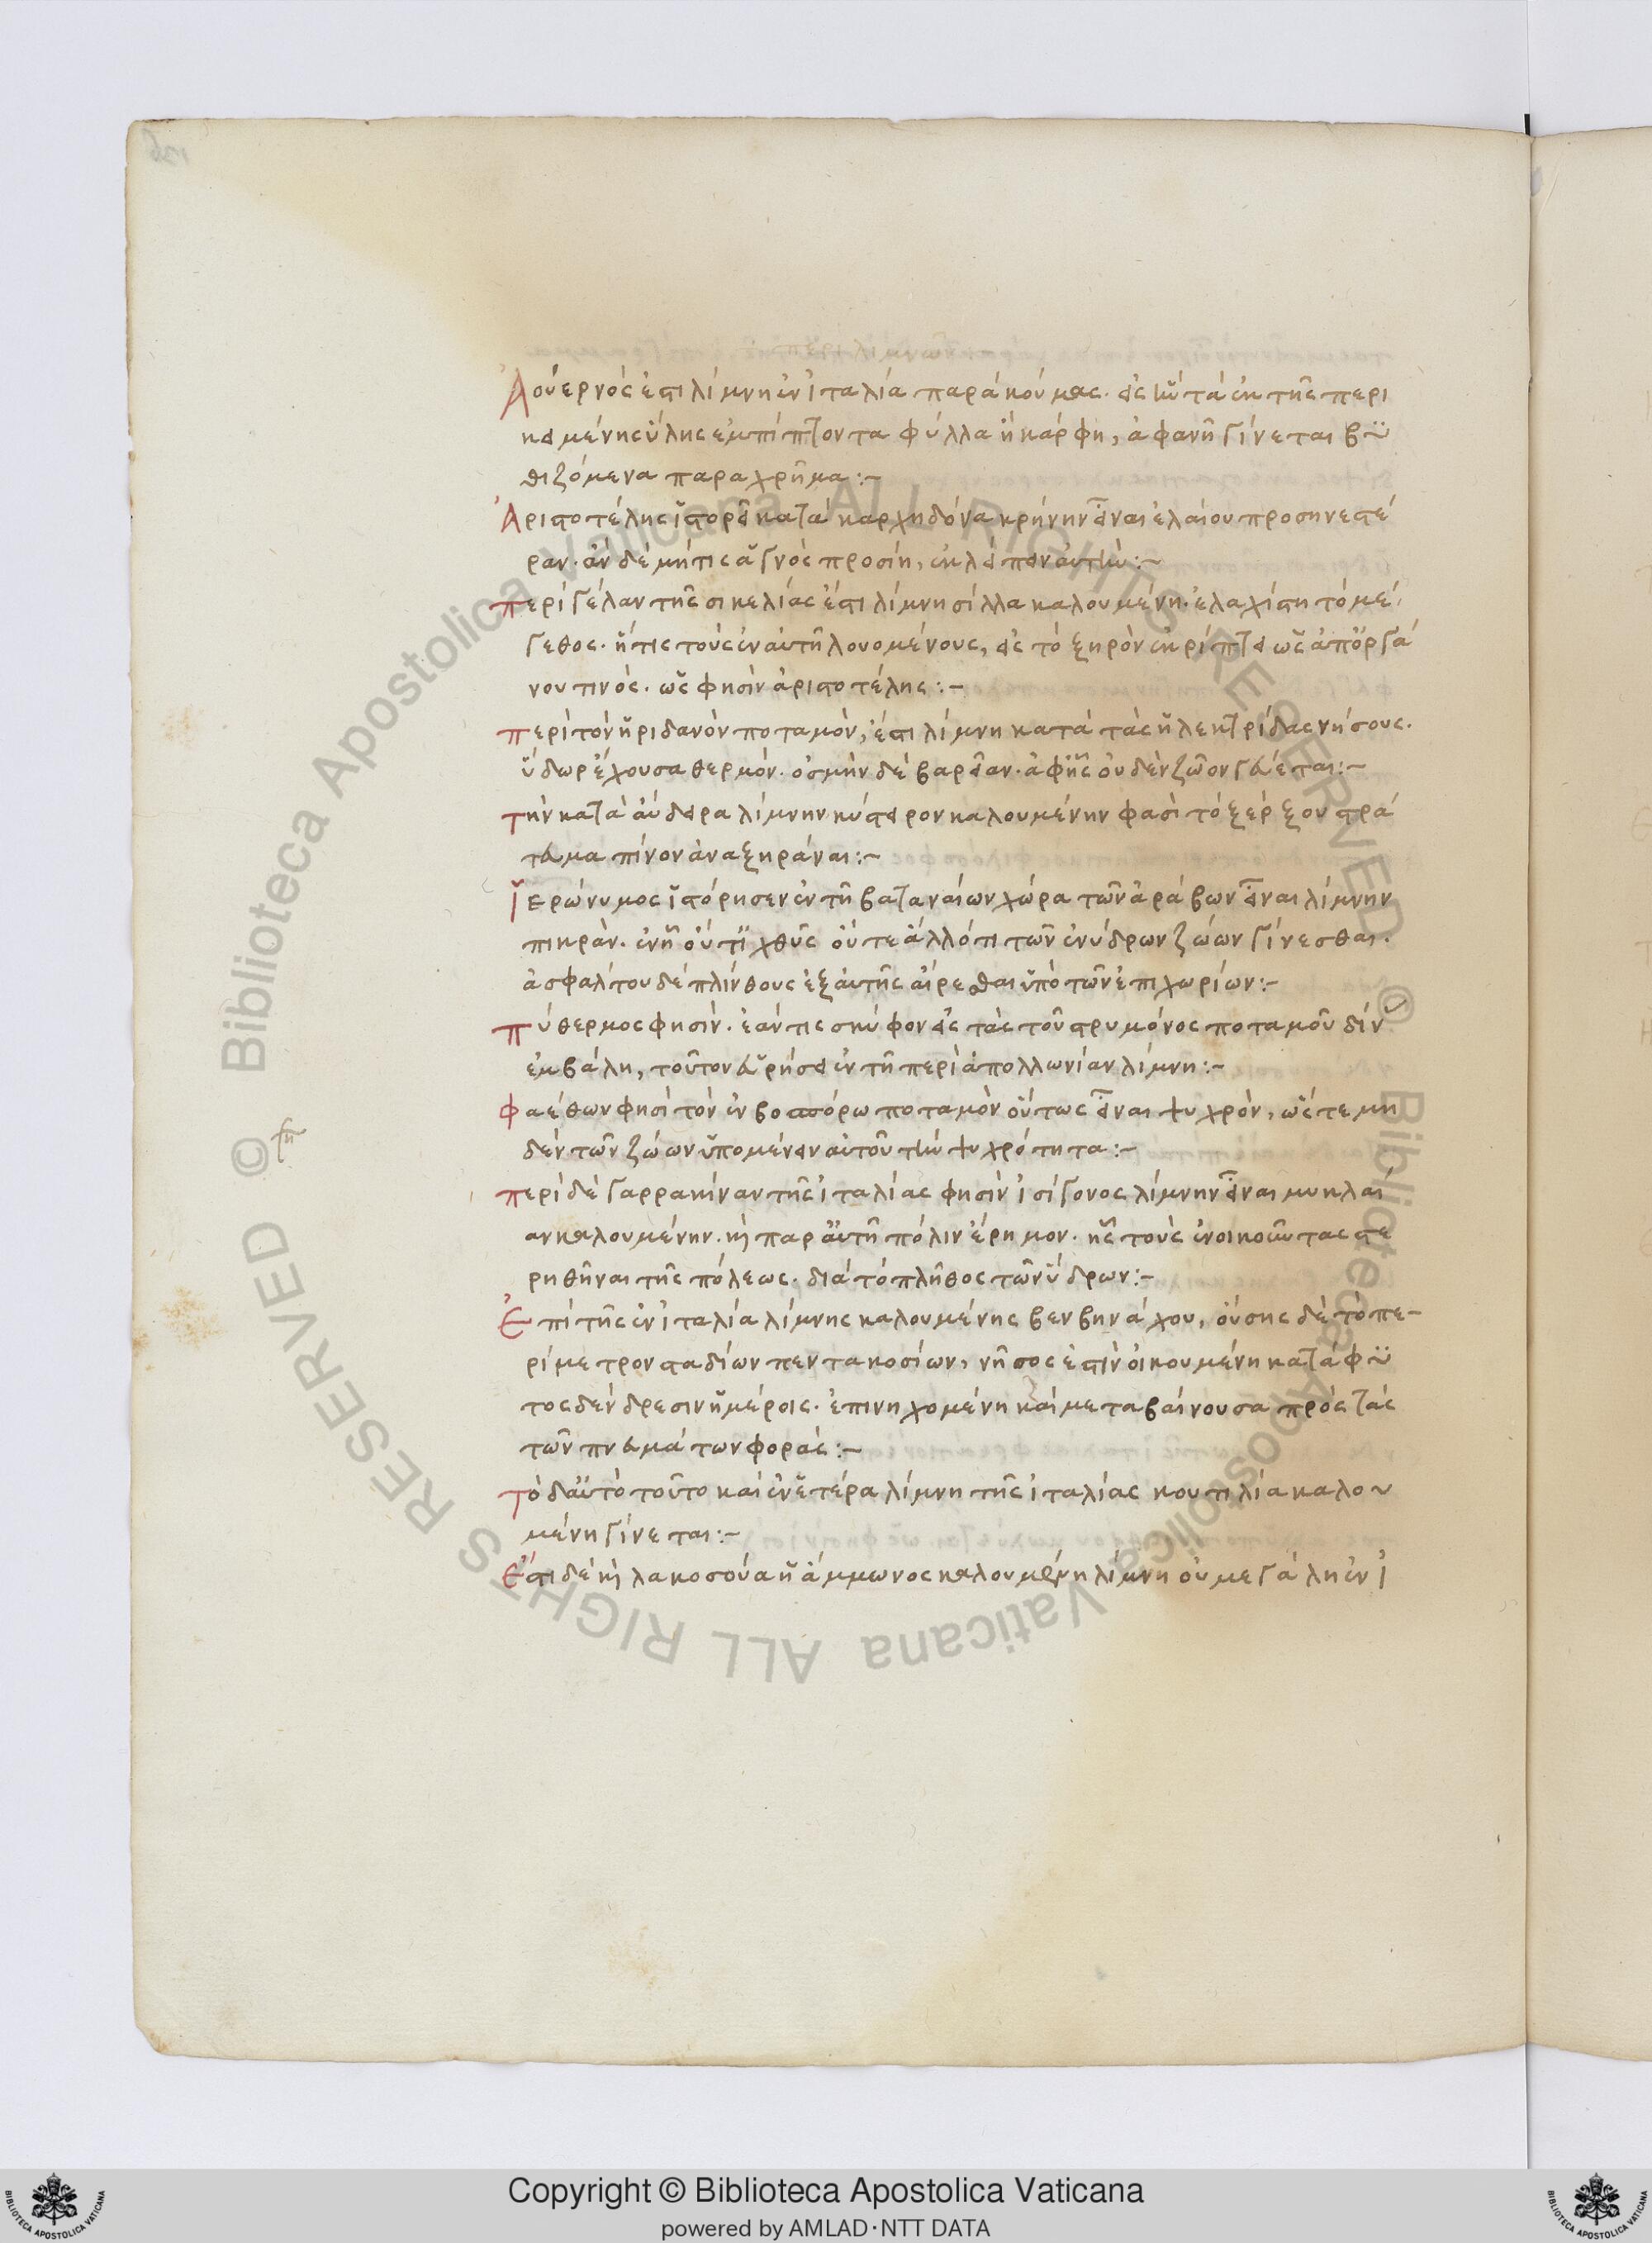 Ἀούερνός ἐστι λίμνη ἐν ἰταλία παρὰ κούμας. εἰς ἣν τὰ ἐκ τῆς περι
κειμένης ὕλης ἐμπίπτοντα φύλλα ἢ κάρφη, ἀφανῆ γίνεται βυ
θιζόμενα παραχρῆμα :~
Ἀριστοτέλης ἱστορεῖ κατὰ καρχηδόνα κρήνην εἶναι ἐλαίου προσηνεστέ
ραν. ἂν δὲ μή τις ἁγνὸς προσίη, ἐκλείπειν αὐτήν :~
περὶ γέλαν τῆς σικελίας ἐστὶ λίμνη σίλλα καλουμένη. ἐλαχίστη τὸ μέ
γεθος. ἥτις τοὺς ἐν αὐτῆ λουομένους, εἰς τὸ ξηρὸν ἐκρίπτει ὡς ἀπ' ὀργά
νου τινός. ὥς φησὶν ἀριστοτέλης :~
περὶ τὸν ἠριδανὸν ποταμὸν, ἐστὶ λίμνη κατὰ τὰς ἠλεκτρίδας νήσους.
ὕδωρ ἔχουσα θερμόν. ὀσμὴν δὲ βαρεῖαν. ἀφ' ἧς οὐδὲν ζῶον γεύεται :~
τὴν κατὰ αὔδειρα λίμνην κύστειρον καλουμένην φασὶ τὸ ξέρξου στρά
τευμα πίνον ἀναξηράναι :~
Ἱερώνυμος ἱστόρησεν ἐν τῆ βαταναίων χώρα τῶν ἀράβων εἶναι λίμνην
πικράν. ἐν ἧ οὔτ' ἰχθῦς οὔτε ἄλλό τι τῶν ἐνύδρων ζώων γίνεσθαι.
ἀσφάλτου δὲ πλίνθους ἐξ αὐτῆς αἴρεσθαι ὑπὸ τῶν ἐπιχωρίων :~
πύθερμος φησὶν. ἐάν τις σκύφον εἰς τὰς τοῦ στρυμόνος ποταμοῦ δίν
ἐμβάλη, τοῦτον εὑρήσει ἐν τῆ περὶ ἀπολλωνίαν λίμνη :~
φαέθων φησὶ τὸν ἐν βοσπόρω ποταμὸν οὕτως εἶναι ψυχρὸν, ὥστε μη
δὲν τῶν ζώων ὑπομένειν αὐτοῦ τὴν ψυχρότητα :~
περὶ δὲ γαρρακίναν τῆς ἰταλίας φησὶν ἰσίγονος λίμνην εἶναι μυκλαί
αν καλουμένην. καὶ παρ' αὐτῆ πόλιν ἔρημον. ἧς τοὺς ἐνοικοῦντας στε
ρηθῆναι τῆς πόλεως. διὰ τὸ πλῆθος τῶν ὕδρων :~
Ἐπὶ τῆς ἐν ἰταλία λίμνης καλουμένης βενβηνάχου, οὔσης δὲ τὸ πε-
ρίμετρον σταδίων πεντακοσίων, νῆσος ἐστὶν οἰκουμένη κατάφυ
τος δένδρεσιν ἡμέροις. ἐπινηχομένη καὶ μεταβαίνουσα πρὸς τὰς
τῶν πνευμάτων φοράς :~
τὸ δ' αὐτὸ τοῦτο καὶ ἐν ἑτέρα λίμνη τῆς ἰταλίας κουτιλία καλου
μένη γίνεται :~
Ἔστι δὲ καὶ λακοσούα ἡ ἄμμωνος καλουμένη λίμνη οὐ μεγάλη ἐν ἰ
Copyright © Biblioteca Apostolica Vaticana
powered by AMLAD·NTT DATA
© Biblioteca Apostolica Vaticana ALL RIGHTS RESERVED
© Biblioteca Apostolica Vaticana ALL RIGHTS RESERVED
BIBLIOTECA APOSTOLICA VATICANA
BIBLIOTECA APOSTOLICA VATICANA